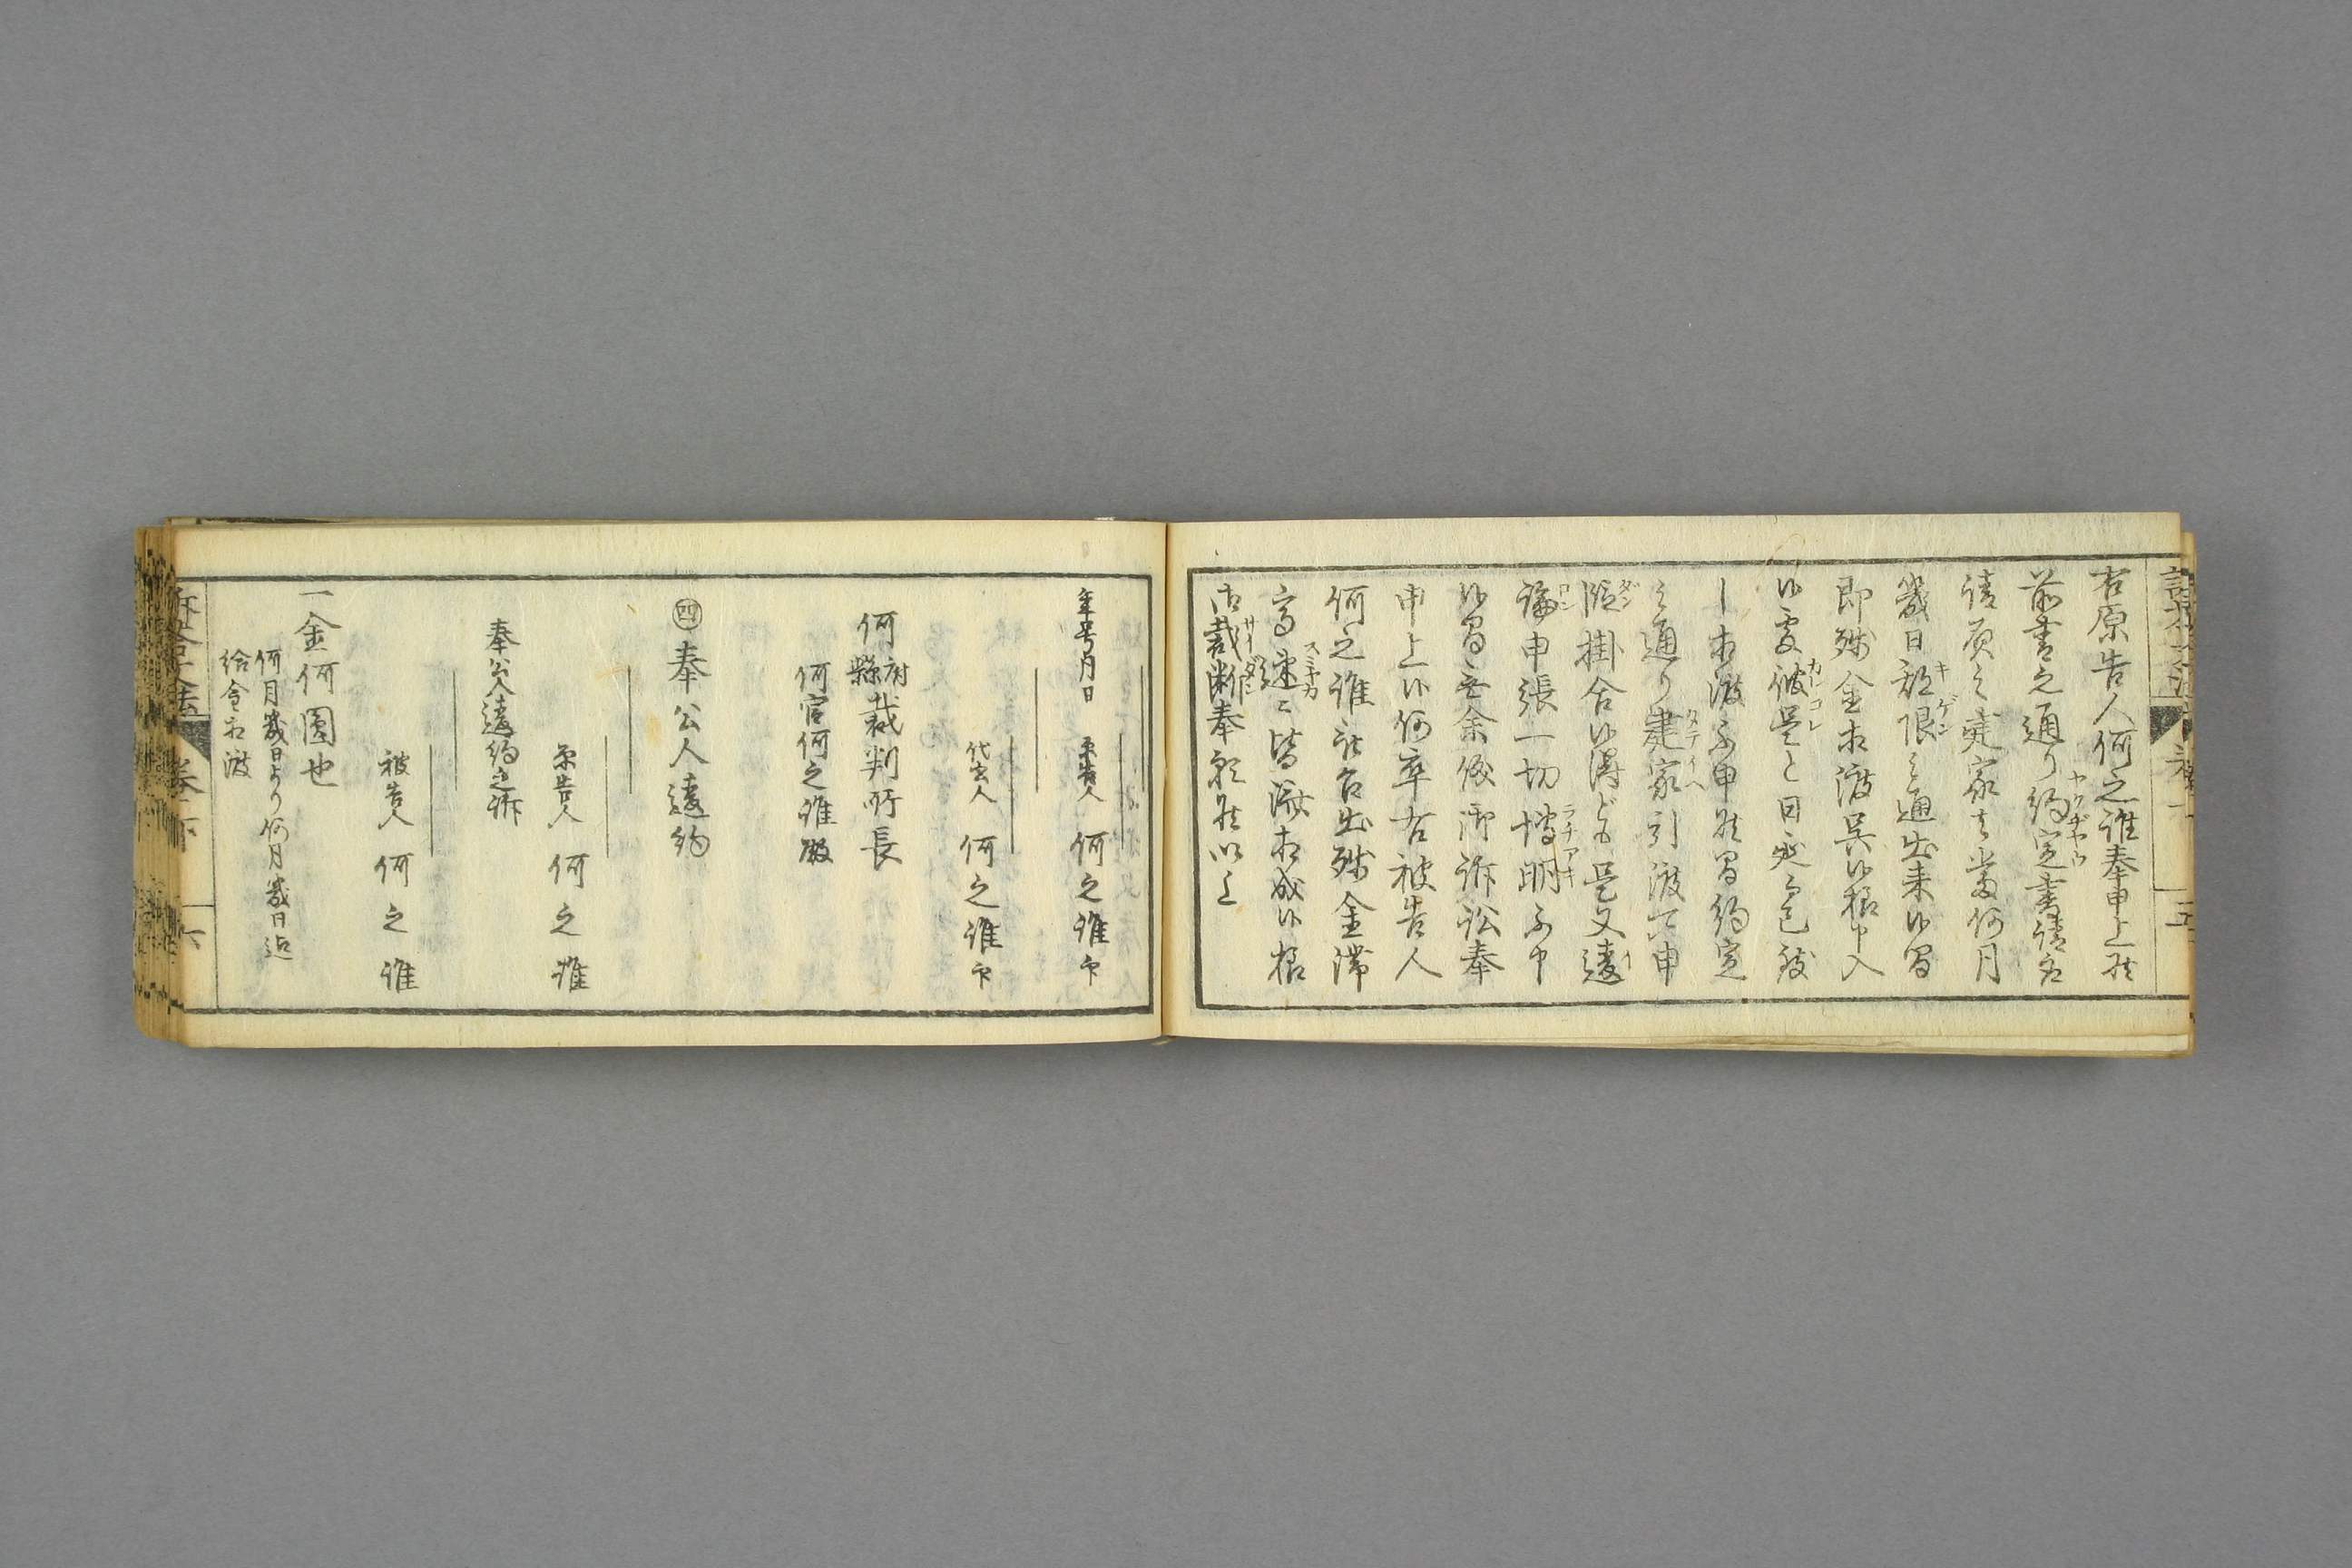 右原告人何之誰奉申上候
前書之通り約定書請名
請負之建家者当何月
幾日期限之通出来候間
即残金相渡呉候様申入
候処彼是と日延
し相渡不申候間約定
之通り建家引渡可申
談掛合候得ども是又違
論申張一切埒明不申
候間無余儀御訴訟奉
申上候何卒右被告人
何之誰被召出残金滞
高速ニ皆済相成候様
御裁断奉願候以上
年号月日 原告人 何之誰印
代言人 何之誰印
何府縣裁判所長
何官何之誰殿
四 奉公人違約
原告人 何之誰
奉公人違約之訴
被告人 何之誰
一金何圓也
何月幾日より何月幾日迄
給金相渡